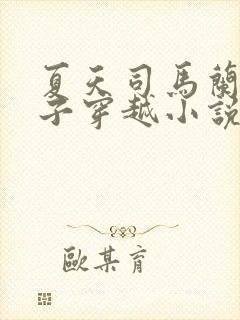 夏天司馬蘭
子穿越小說
歐某育